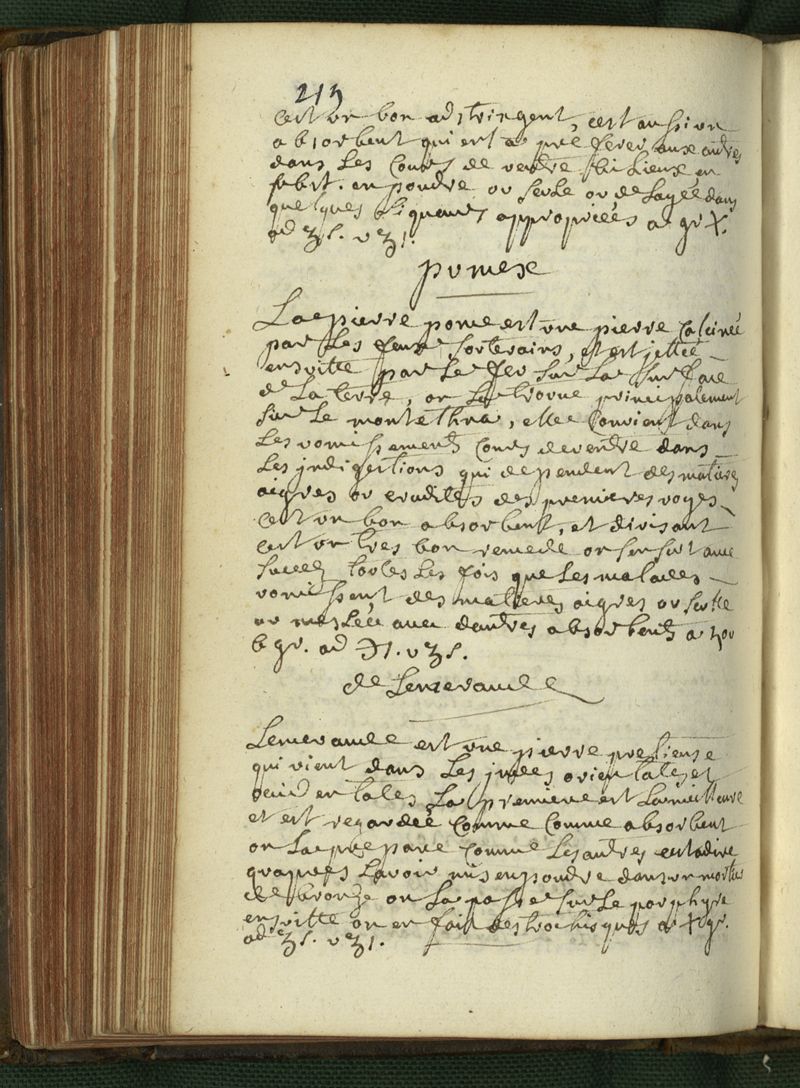 213
cest un bon adstringent, cest aussi un
absorbent qui est a preferer aux autres
dans les cours de ventre bilieux en
subst. en poudre ou seule ou delayée dans
quelques liqueurs appropriées a gr x.
ad ʒs. v ʒ1.
pumex
La pierre ponce est une pierre calcinée
par les feux souterains, et est jettée
ensuitte par le fer sur la surface
de la terre, on la trouve principalement
sur le mont ethna, elle convient dans
les vomissements cours de ventre dans
les indigestions qui dependent des matieres
aigres ou crudites des premieres voyes
cest un bon absorbent, et divisant
cest un tres bon remede on sen sert avec
succez toutes les fois que les malades
vomissent des matieres aigres ou seulle
ou meslée avec dautres absorbents a
6 gr. ad ℈1. v ʒs.
de Lemeraude
Lemeraude est une pierre pretieuse
qui vient dans les indes orientales et
occidentales la premiere est la meilleure
et est regardée comme comme absorbent
on la prepare comme les autres cestadire
quapres lavoir mis en poudre dans un mortier
de bronze on la passe sur le porphyre
ensuitte on en fait des trochisques a x gr.
ad ʒs. v ʒ1.